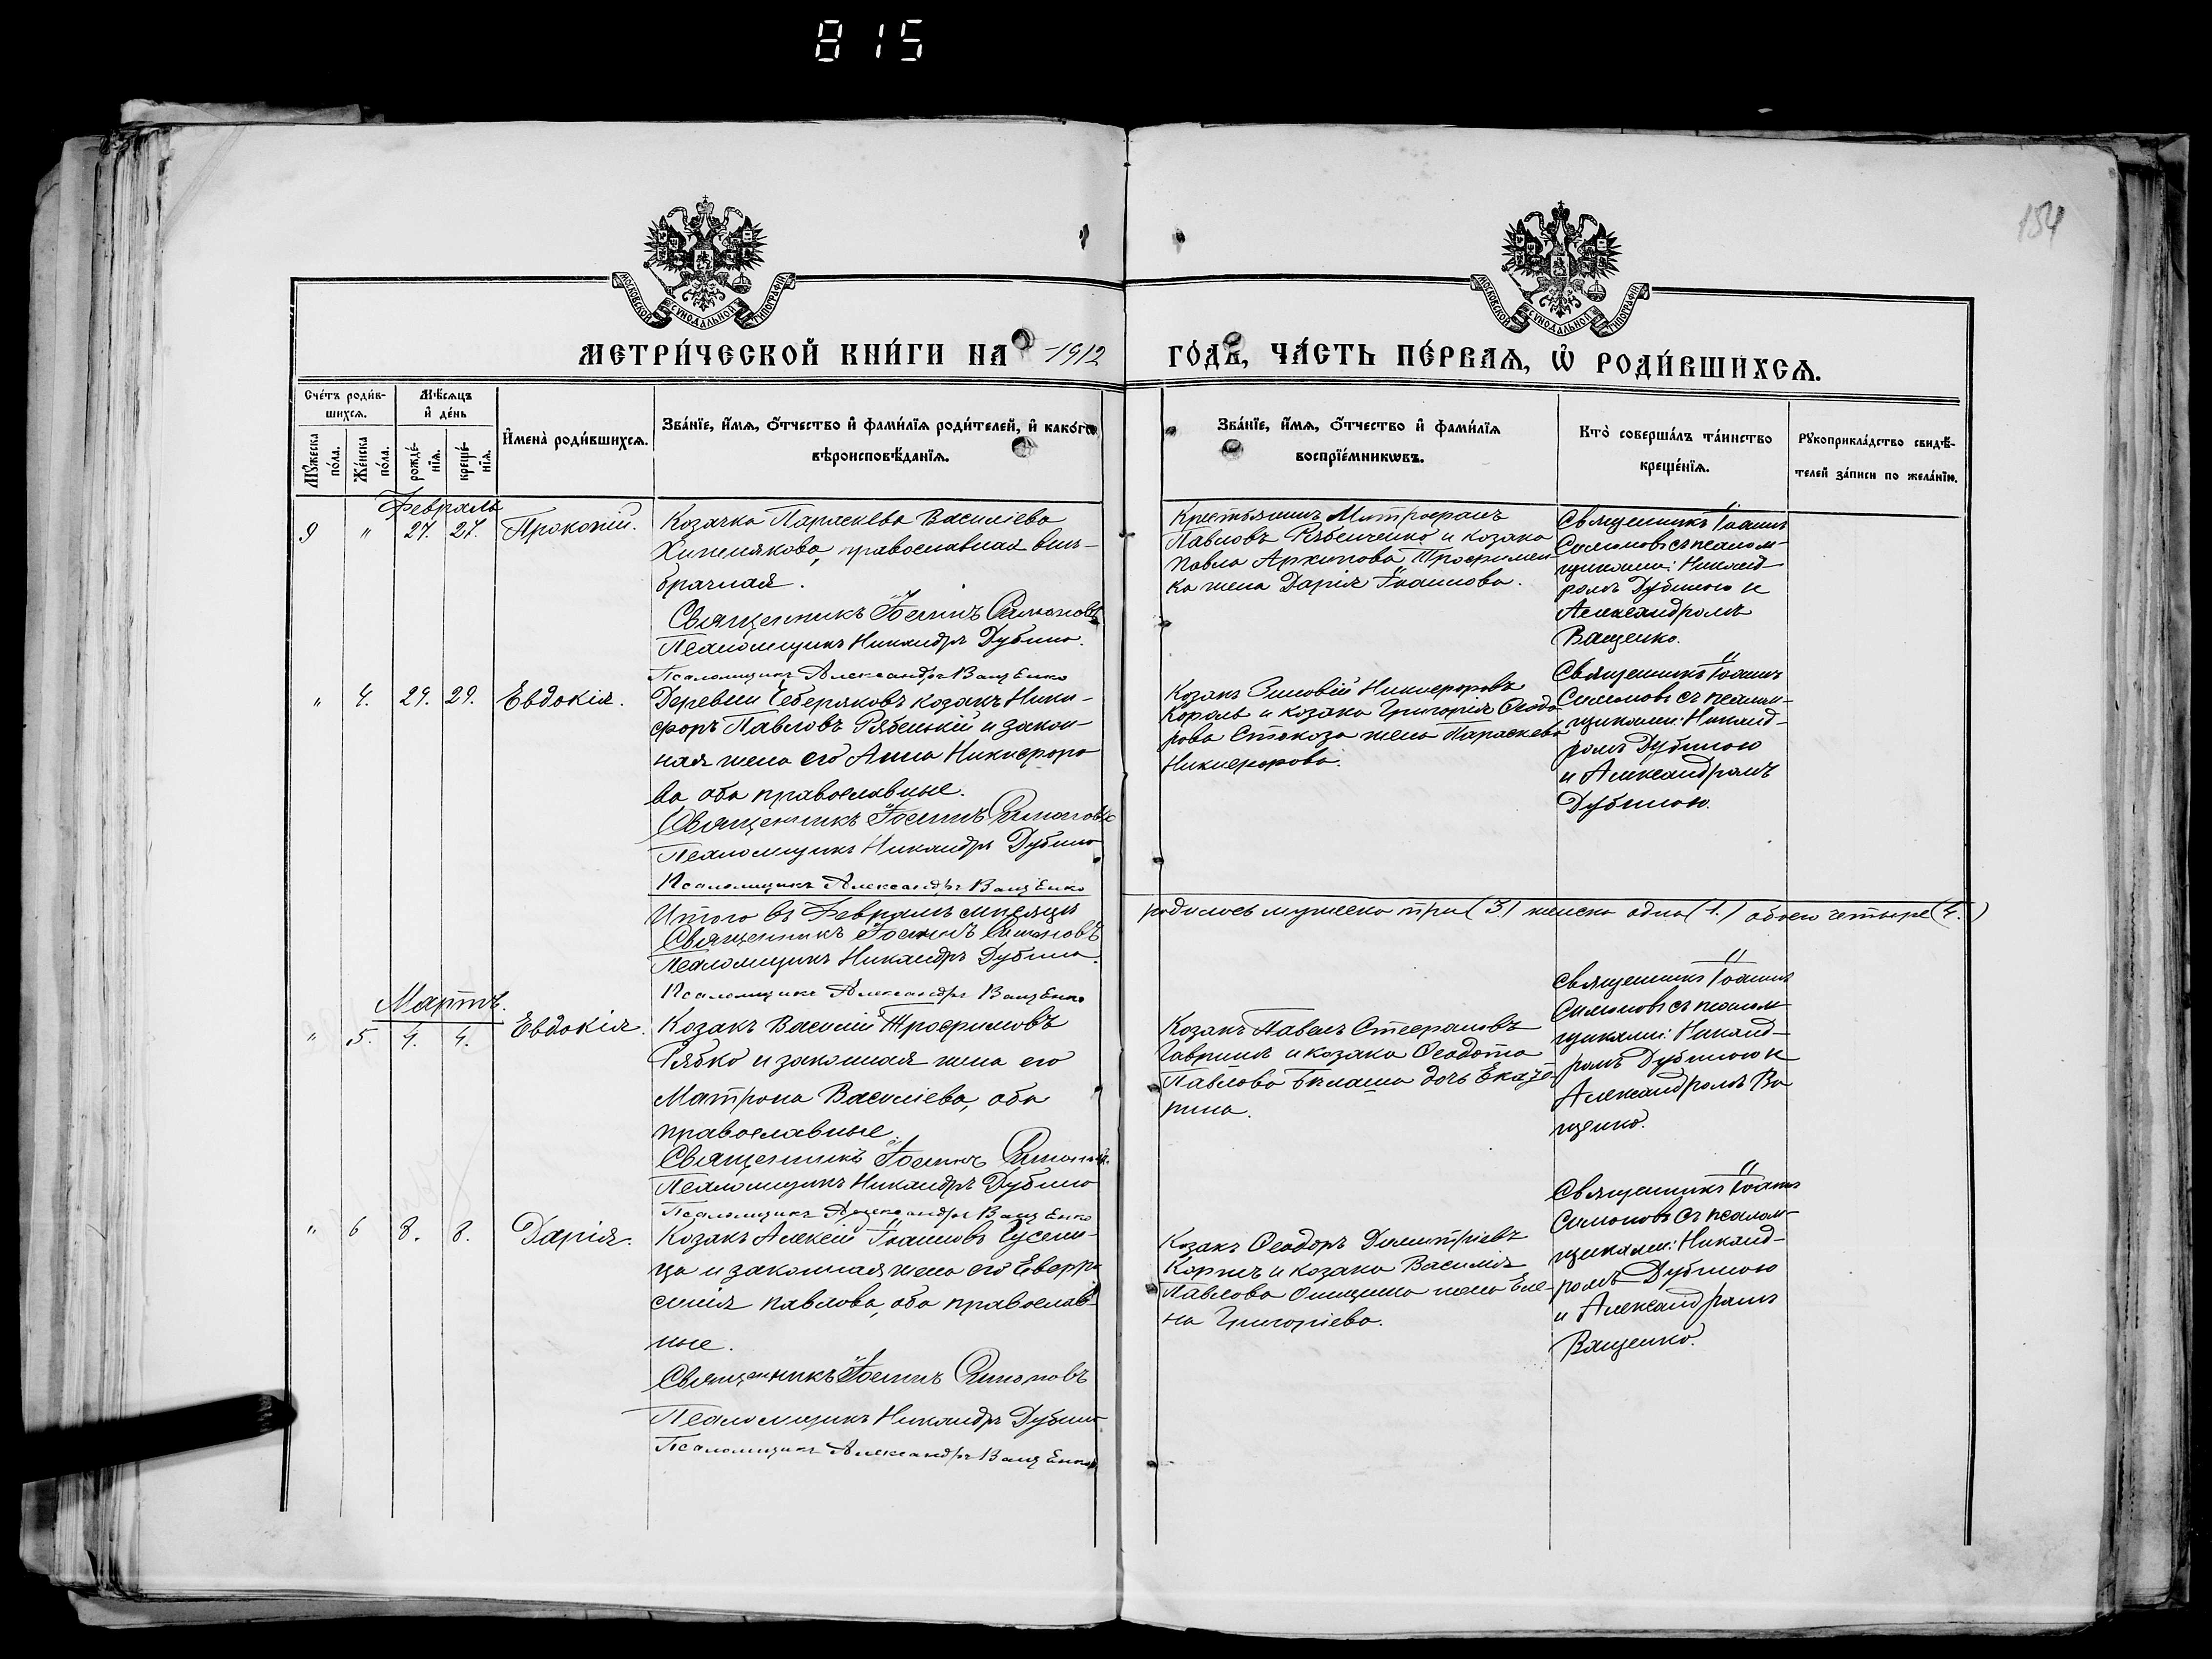 815
154
МОСКОВСКОЙ СѴНОДАЛЬНОЙ ТИПОГРАФІИ
МОСКОВСКОЙ СѴНОДАЛЬНОЙ ТИПОГРАФІИ
МЕТРИ́ЧЕСКОЙ КНИ́ГИ НА 1912 ГО́ДЪ, ЧА́СТЬ ПЕ́РВАѦ, Ѽ РОДИ́ВШИХСѦ.
Сче́тъ роди́в-
шихсѧ.
Мѣ́сѧцъ
и҆ де́нь
Мꙋ́жеска
по́ла.
Же́нска
по́ла.
рожде́-
нїѧ.
креще́-
нїѧ.
И҆мена̀ роди́вшихсѧ.
Зва́нїе, и҆́мѧ, ѻ҆́тчество и҆ фами́лїѧ роди́телей, и҆ како́гѡ
вѣроисповѣ́данїѧ.
Зва́нїе, и҆́мѧ, ѻ҆́тчество и҆ фами́лїѧ
воспрїе́мникѡвъ.
Кто̀ соверша́лъ та́инство
креще́нїѧ.
Рꙋкоприкла́дство свидѣ́-
телей за́писи по жела́нїю.
Февраль
9 " 27. 27. Прокопій.
Козачка Параскева Василіева
православная внѣ-
брачная.
Священникъ Іоаннъ Симоновъ
Псаломщикъ Никандръ Дубина.
Псаломщикъ Александръ Ващенко
Крестьянинъ Митрофанъ
Павловъ Рябченко и козака
Павла Архипова Трофимен-
ка жена Дарія Іоаннова.
Священникъ Іоаннъ
Симоновъ съ псалом-
щиками: Никанд-
ромъ Дубиною и
Александромъ
Ващенко.
" 4. 29. 29. Евдокія.
Деревни Чеберяковъ козакъ Ники-
форъ Павловъ Рябенькій и закон-
ная жена его Анна Никифоро-
ва, оба православные.
Священникъ Іоаннъ Симоновъ
Псаломщикъ Никандръ Дубина
Псаломщикъ Александръ Ващенко
Козакъ Зиновій Никифоровъ
Король и козака Григорія Ѳеодо-
рова Стокоза жена Параскева
Никифорова.
Священникъ Іоаннъ
Симоновъ съ псалом-
щиками: Никанд-
ромъ Дубиною
и Александромъ
Дубиною.
Итого въ Февралѣ мѣсяцѣ родилось мужеска три (3.) женска одна (1.) обоего четыре (4.)
Священникъ Іоаннъ Симоновъ
Псаломщикъ Никандръ Дубина.
Псаломщикъ Александръ Ващенко
Мартъ.
" 5. 4. 4. Евдокія.
Козакъ Василій Трофимовъ
Рябко и законная жена его
Матрона Василіева, оба
православные.
Священникъ Іоаннъ Симоновъ.
Псаломщикъ Никандръ Дубина
Псаломщикъ Александръ Ващенко
Козакъ Павелъ Стефановъ
Гавришъ и козака Ѳеодота
Павлова Билаша дочь Екате-
рина.
Священникъ Іоаннъ
Симоновъ съ псалом-
щиками: Никанд-
ромъ Дубиною и
Александромъ Ва-
щенко.
" 6 8. 8. Дарія.
Козакъ Алексій Іоанновъ Гусени-
ца и законная жена его Евфро-
синія Павлова, оба православ-
ные.
Священникъ Іоаннъ Симоновъ
Псаломщикъ Никандръ Дубина
Псаломщикъ Александръ Ващенко
Козакъ Ѳеодоръ Димитріевъ
и козака Василія
Павлова Онищенка жена Еле-
на Григоріева.
Священникъ Іоаннъ
Симоновъ съ псалом-
щиками: Никанд-
ромъ Дубиною
и Александромъ
Ващенко.